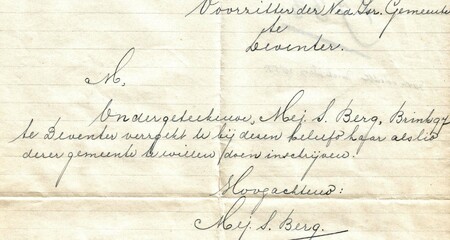 Voorzitter der Ned. Isr. Gemeente
te
Deventer.
M,
Ondergeteekende, Mej. S. Berg, Brinkg 7
te Deventer verzoekt U bij dezen beleefd haar als lid
dezer gemeente te willen doen inschrijven.
Hoogachtend:
Mej. S. Berg.